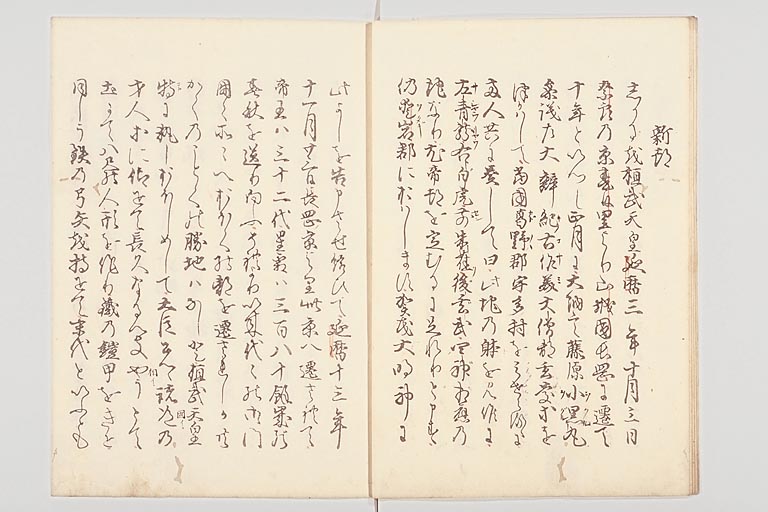 新都
しかるを桓武天皇延暦三年十月三日
奈良の京春日里より山城國長岡に遷て
十年といつし正月に大納言藤原小黒丸
参議左大辨紀古佐美大僧都玄慶等を
つかはして當國葛野郡宇多村を見せらるに
両人共に奏して曰此地の躰を見候に
左青龍右白虎前朱雀後玄武四神相應の
地なり尤帝都を定むるに足れりと申す
仍愛宕郡におはします賀茂大明神に
此よしを告申させ給ひて延暦十三年
十一月廿一日長岡京より此京へ遷されて
帝王は三十二代星霜は三百八十余歳の
春秋を送り向ふ昔より以来代々の帝
國々所々へおほくの都を遷されしか共
かくのことくの勝地はなしと桓武天皇
特に執しおほしめして大臣公卿諸道の
才人等に仰せて長久なるへきやうとて
土にて八尺の人形を作り鐵の鎧甲をきせ
同しう鉄の弓矢を持せて末代といふとも